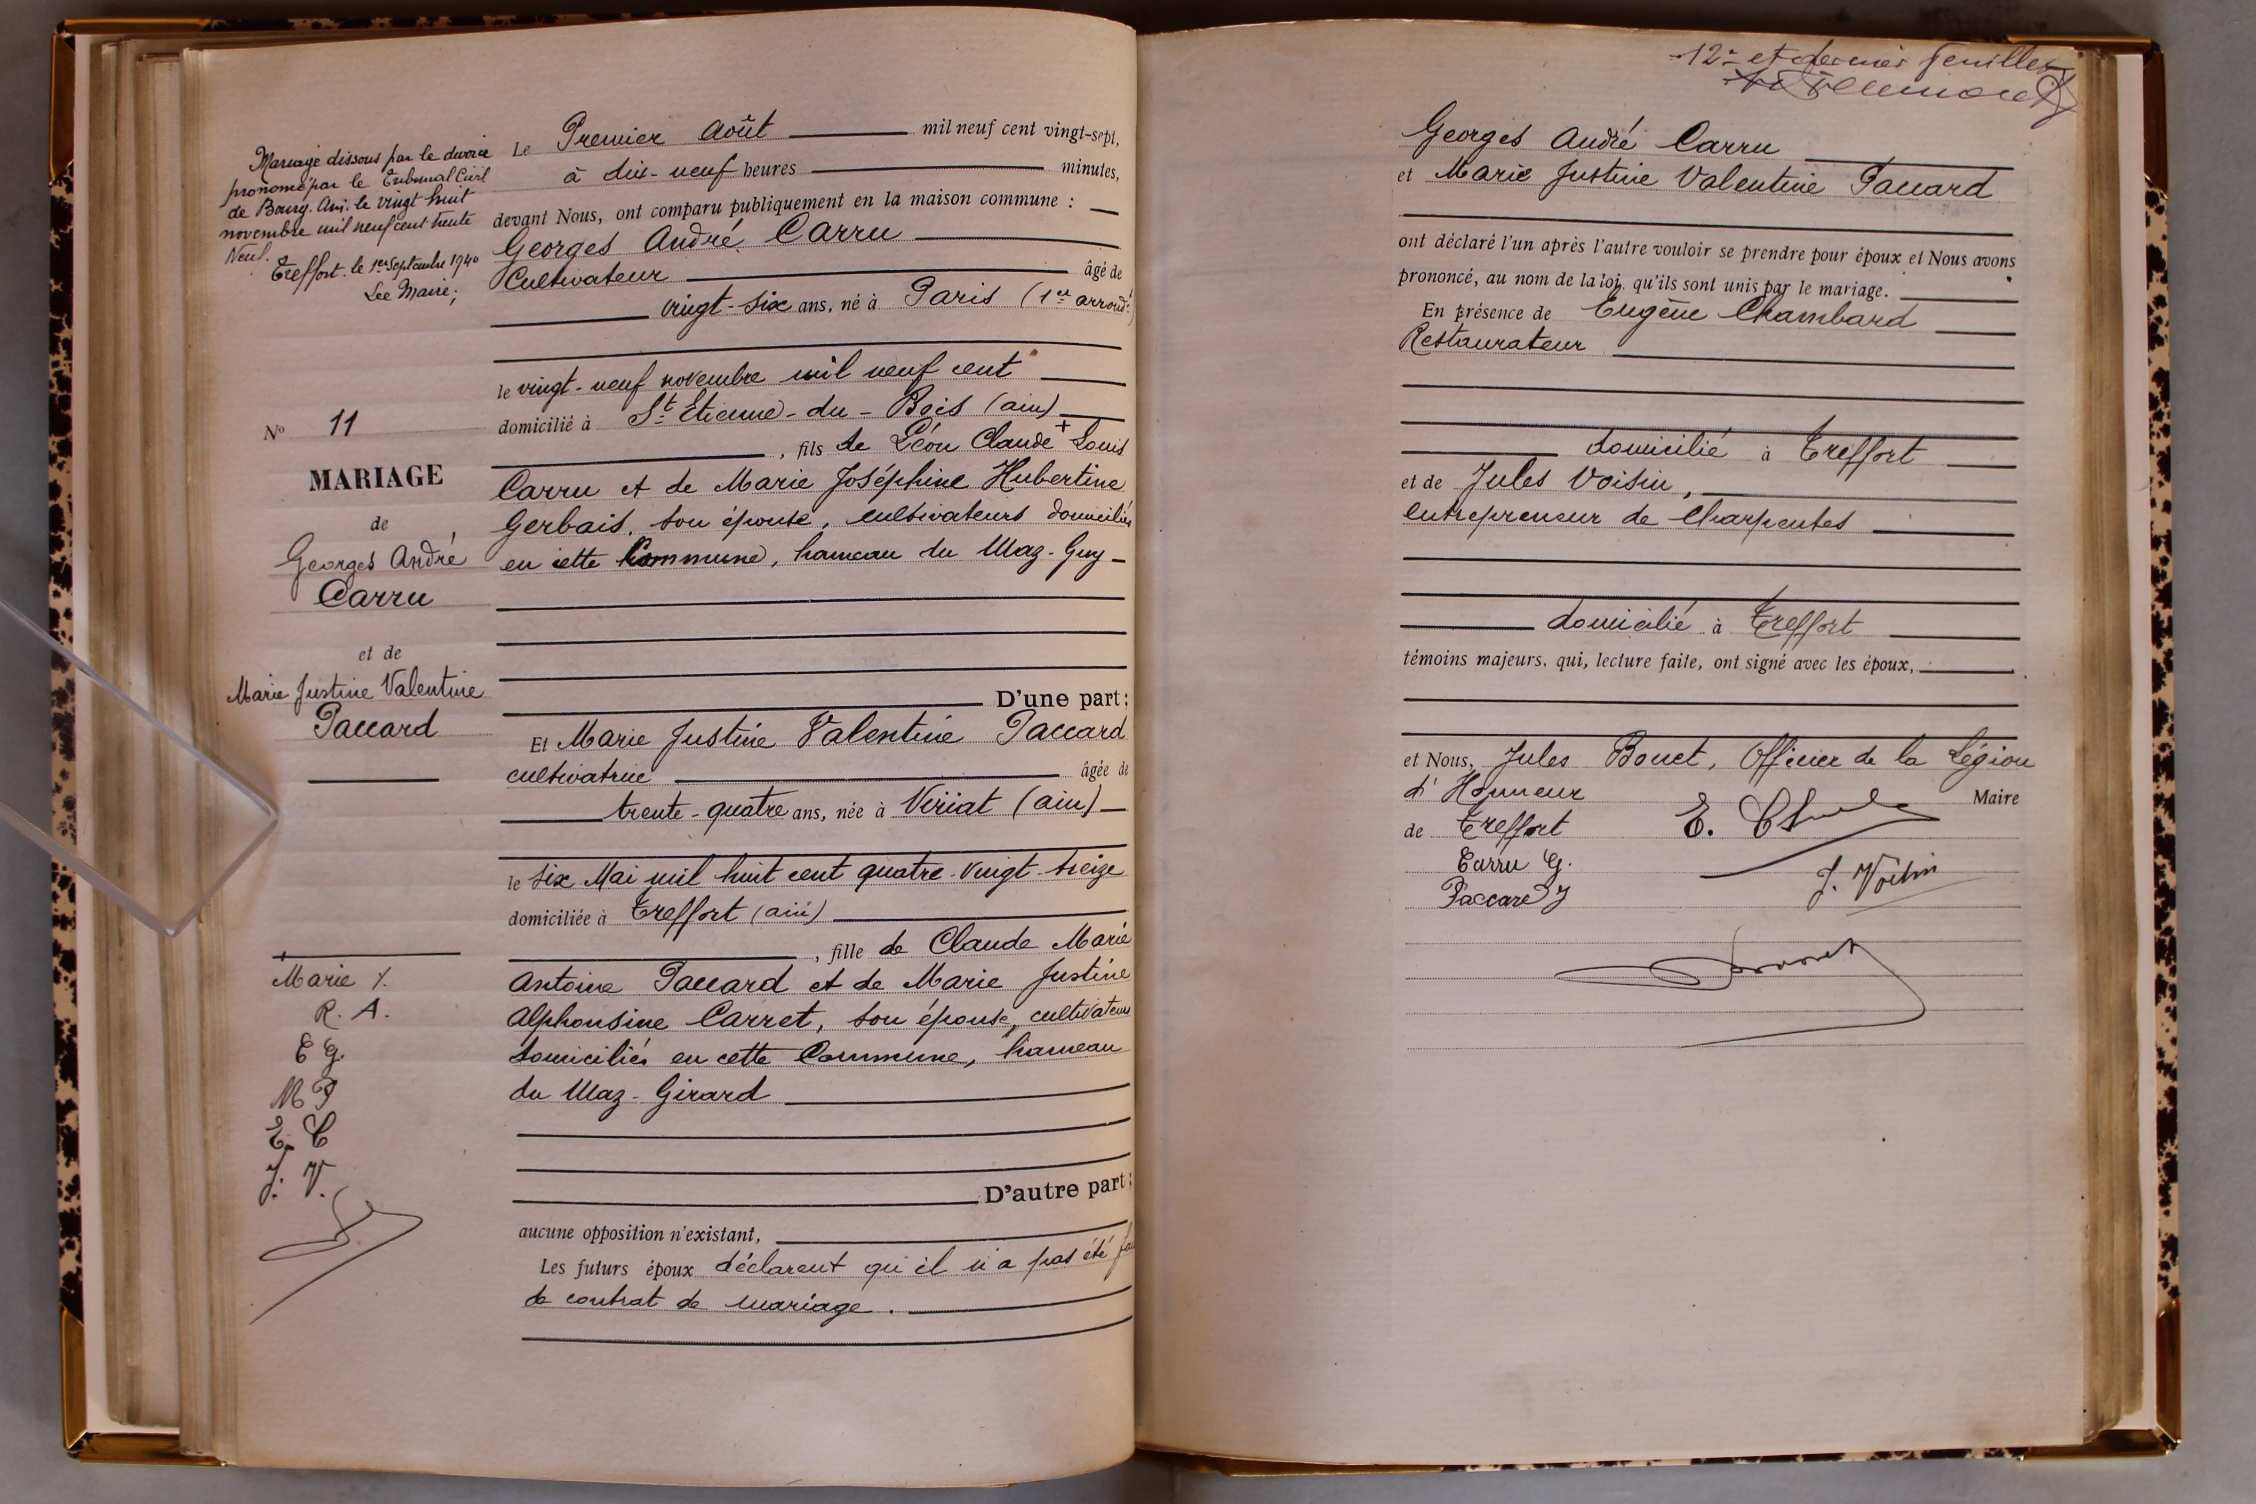 Mariage dissous par le divorce
prononcé par le Tribunal Civil
de Bourg. Ain. le vingt huit
novembre mil neuf cent trente
Neuf.
Treffort. le 1er Septembre 1940
Le Maire;
No 11
MARIAGE
de
Georges André
Carru
et de
Marie Justine Valentine
Paccard
+
Marie /.
R. A.
C G.
M P
E. C
J. V.
Le Premier Août mil neuf cent vingt-sept,
à dix-neuf heures minutes,
devant Nous, ont comparu publiquement en la maison commune :
Georges André Carru
Cultivateur âgé de
vingt-six ans, né à Paris (1er arrondt)
le vingt-neuf novembre mil neuf cent
domicilié à St Etienne-du-Bois (ain)
, fils de Léon Claude + Louis
Carru et de Marie Joséphine Hubertine
Gerbais, son épouse, cultivateurs domiciliés
en cette Commune, hameau du Maz-Guy
D'une part :
Et Marie Justine Valentine Paccard
cultivatrice âgée de
trente-quatre ans, née à Viriat (ain)
le six Mai mil huit cent quatre-vingt-treize
domiciliée à Treffort (ain)
, fille de Claude Marie
Antoine Paccard et de Marie Justine
Alphonsine Carret, son épouse, cultivateurs
domiciliés en cette Commune, hameau
du Maz-Girard
D'autre part :
aucune opposition n'existant,
Les futurs époux déclarent qu'il n'a pas été fait
de contrat de mariage.
12e et dernier feuillet
Georges André Carru
et Marie Justine Valentine Paccard
ont déclaré l'un après l'autre vouloir se prendre pour époux et Nous avons
prononcé, au nom de la loi, qu'ils sont unis par le mariage.
En présence de Eugène Chambard
Restaurateur
domicilié à Treffort
et de Jules Voisin,
entrepreneur de Charpentes
domicilié à Treffort
témoins majeurs, qui, lecture faite, ont signé avec les époux,
et Nous, Jules Bonet, Officier de la Légion
d'Honneur Maire
de Treffort
Carru G.
Paccard J
J. Voisin